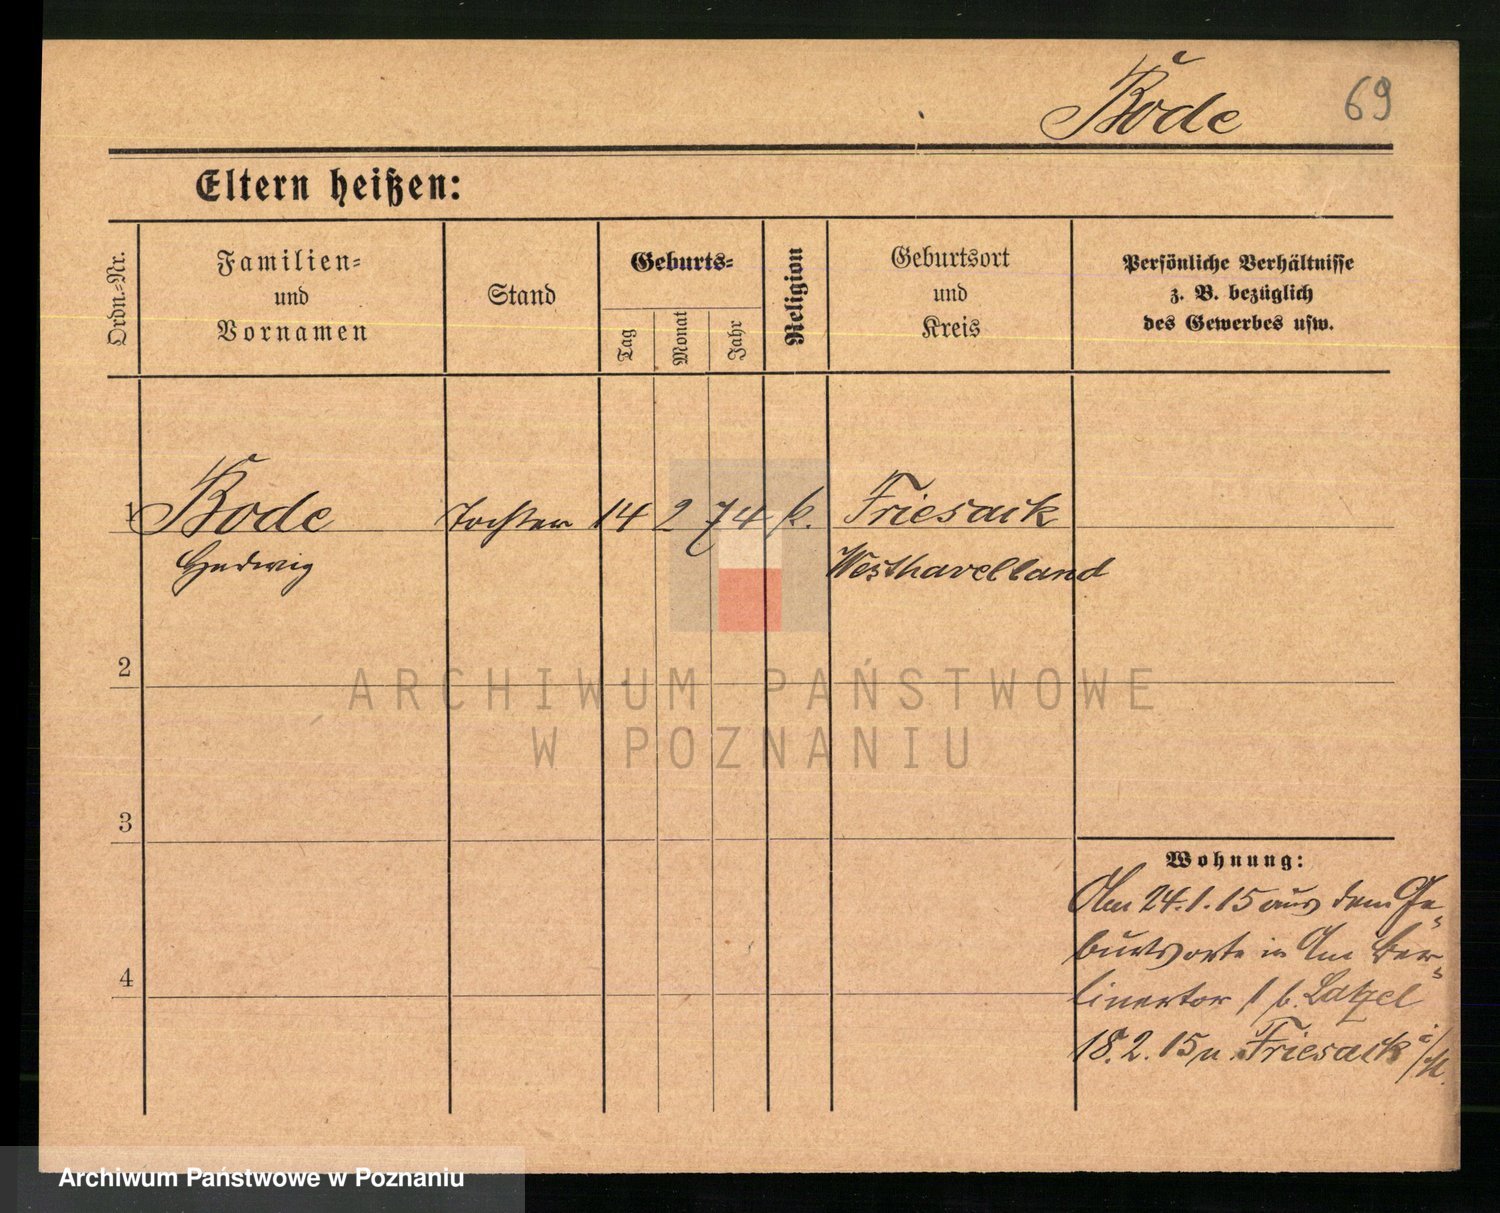 Bode
69
Eltern heißen:
Ordn.-Nr.
Familien-
und
Vornamen
Stand
Geburts-
Tag
Monat
Jahr
Religion
Geburtsort
und
Kreis
Persönliche Verhältnisse
z. B. bezüglich
des Gewerbes usw.
1 Bode Tochter 14 2 74 k. Friesack
Hedwig Westhavelland
2
ARCHIWUM PAŃSTWOWE
W POZNANIU
3
Wohnung:
Am 24.1.15 aus dem Ge-
burtsorte in Am Ber-
4
linertor 1 b. Latzel
18.2.15 n. Friesack i/M.
Archiwum Państwowe w Poznaniu